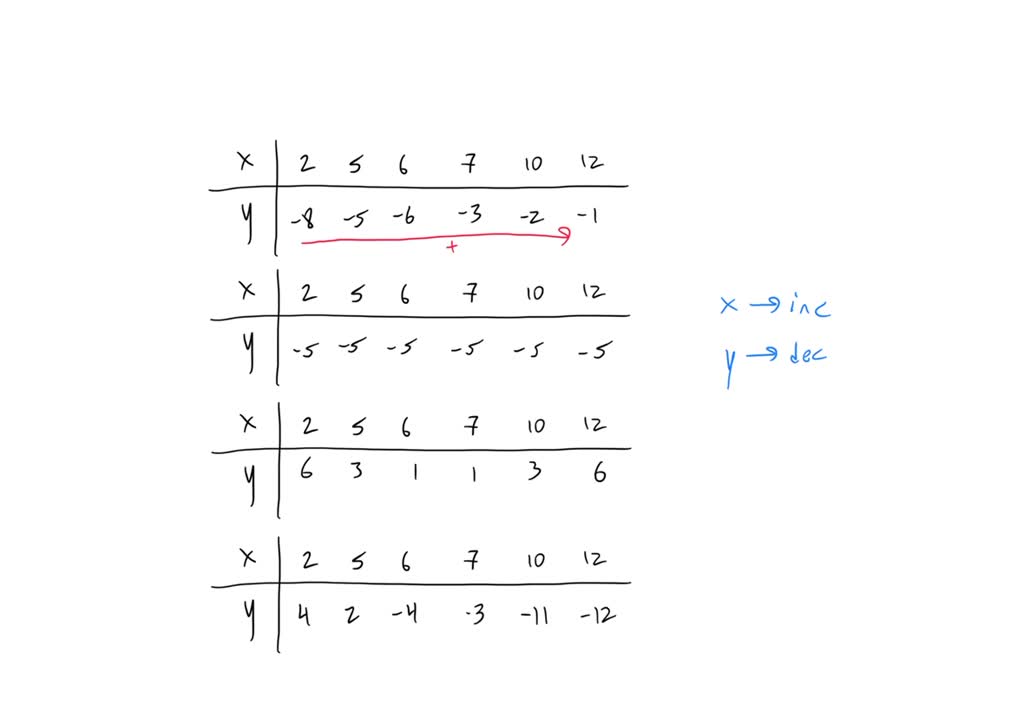 x 2 5 6 7 10 12
y -8 -5 -6 -3 -2 -1
+
x 2 5 6 7 10 12
y -5 -5 -5 -5 -5 -5
x → inc
y → dec
x 2 5 6 7 10 12
y 6 3 1 1 3 6
x 2 5 6 7 10 12
y 4 2 -4 -3 -11 -12